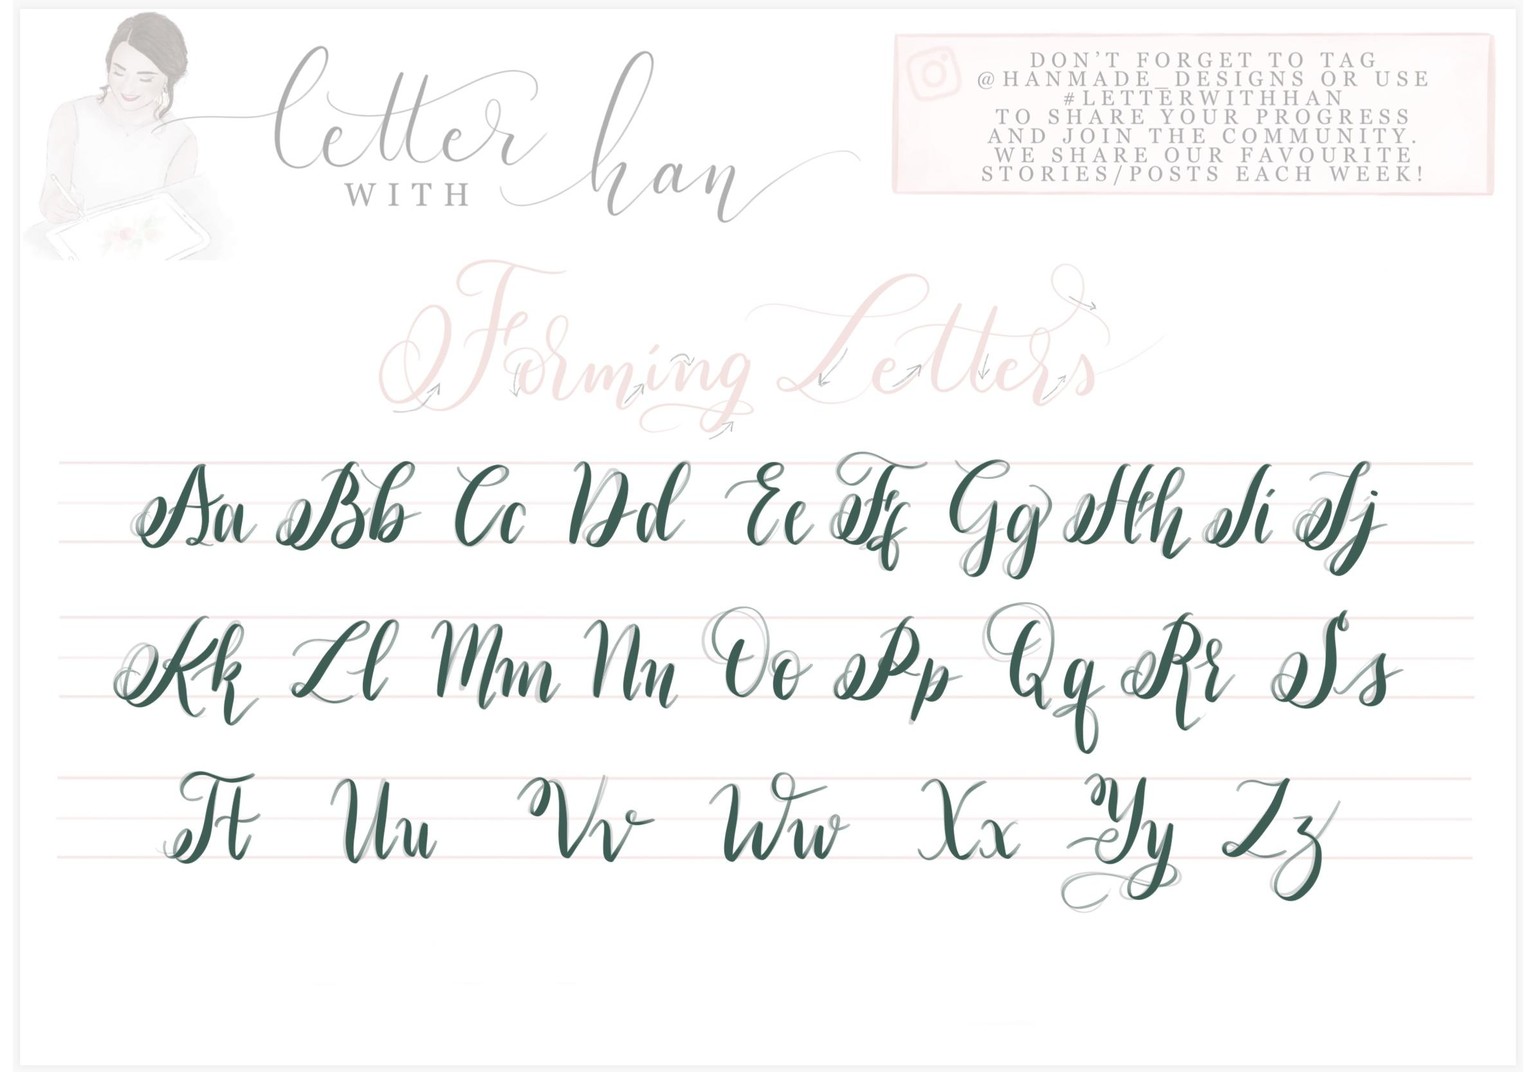 letter
WITH
han
DON'T FORGET TO TAG
@HANMADE_DESIGNS OR USE
#LETTERWITHHAN
TO SHARE YOUR PROGRESS
AND JOIN THE COMMUNITY.
WE SHARE OUR FAVOURITE
STORIES/POSTS EACH WEEK!
Forming Letters
Aa Bb Cc Dd Ee Ff Gg Hh Ii Jj
Kk Ll Mm Nn Oo Pp Qq Rr Ss
Tt Uu Vv Ww Xx Yy Zz